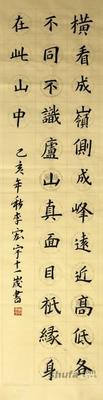 橫看成嶺側成峰遠近高低各
不同不識廬山真面目祇緣身
在此山中
己亥年秋李宏宇十一歲書